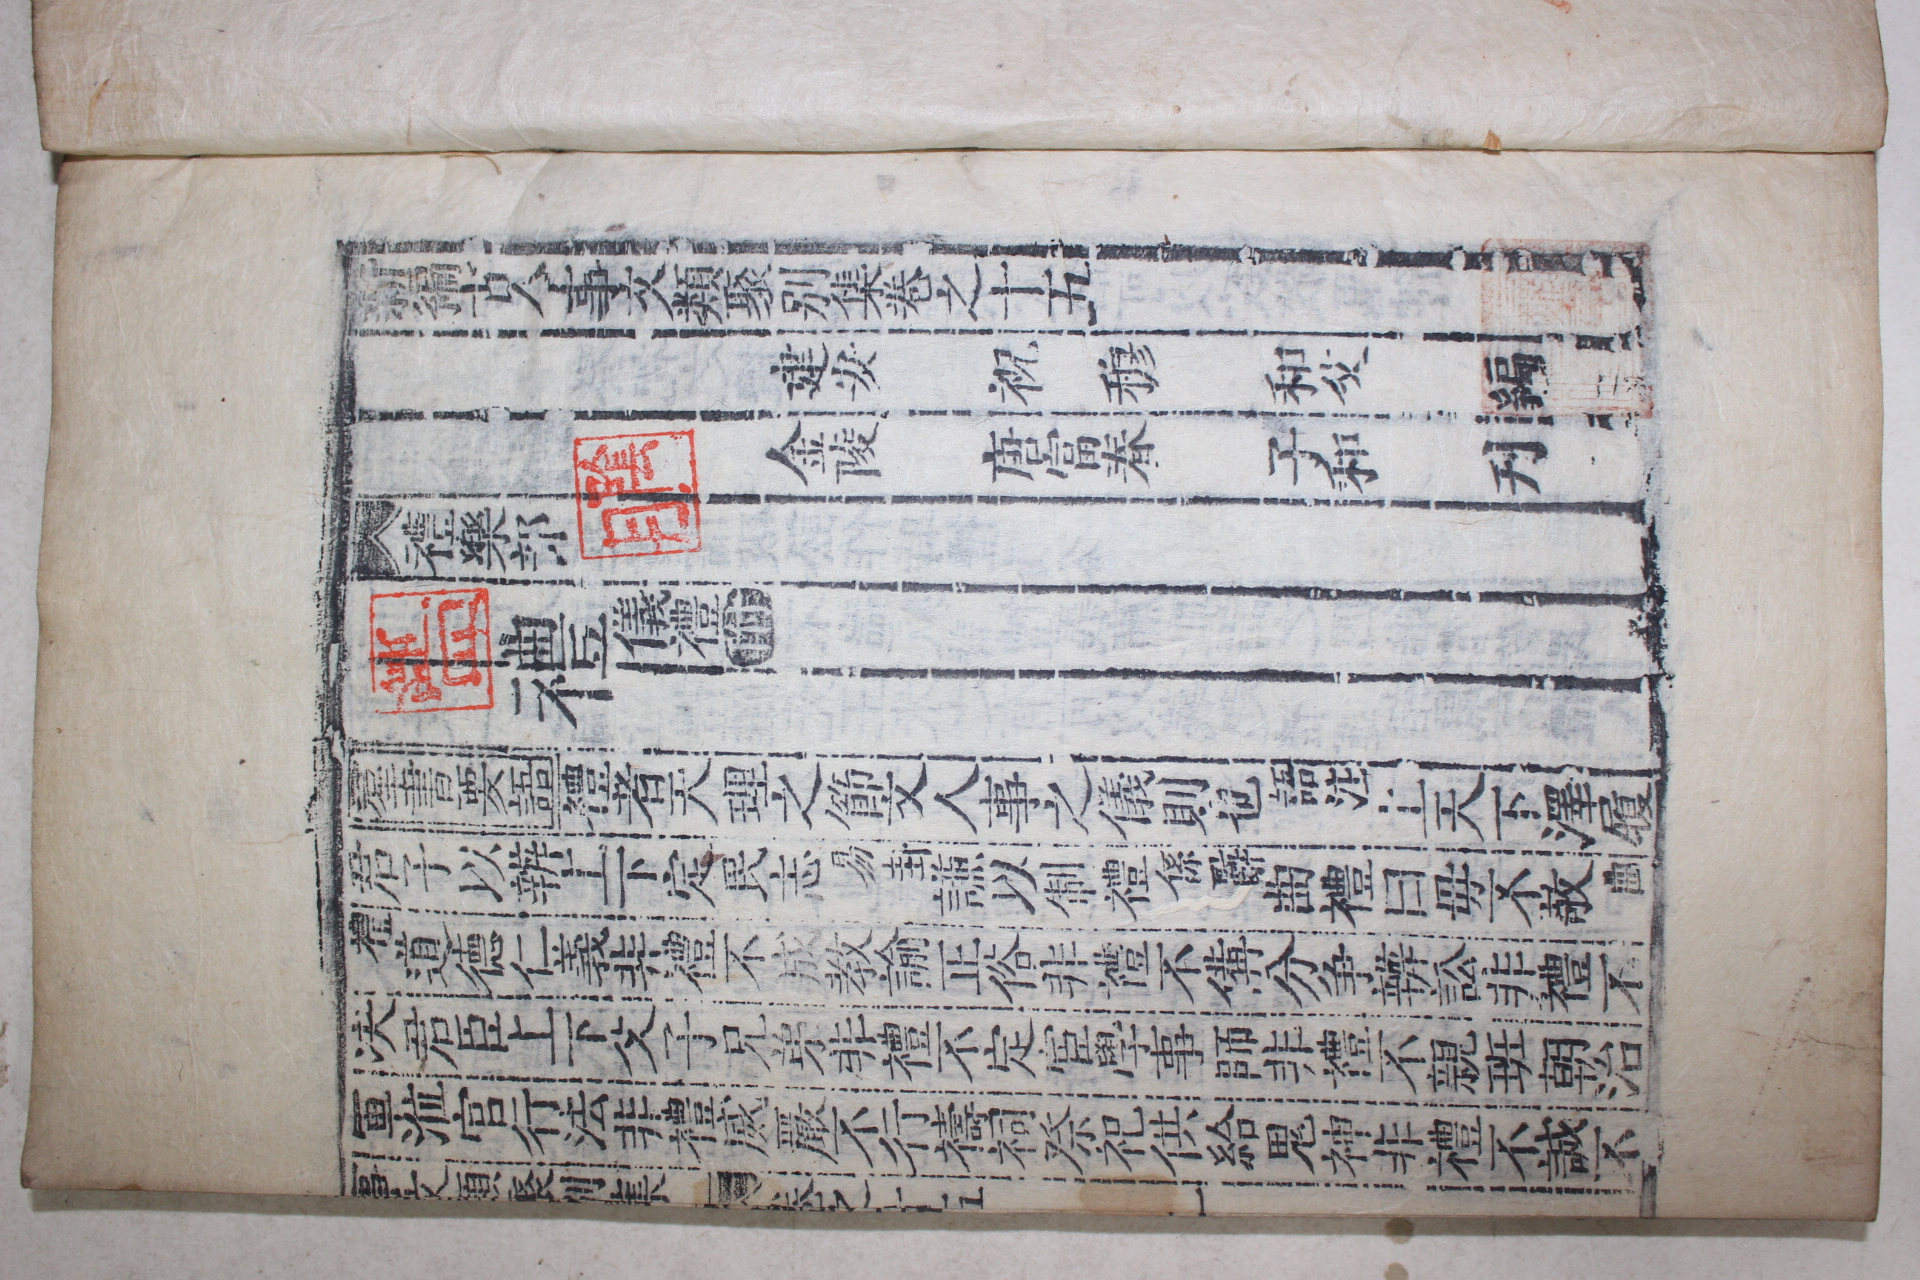 新編古今事文類聚別集卷之十五
建安 祝穆 和父 編
金陵 唐富春 子和 刊
禮樂部
禮 儀禮
羣書要語 禮者天理之節文人事之儀則也 語注 上天下澤履
君子以辯上下定民志 易卦 謙以制禮 係辭 曲禮曰毋不敬 曲
禮 道德仁義非禮不成教訓正俗非禮不備分爭辯訟非禮不
決君臣上下父子兄弟非禮不定宦學事師非禮不親班朝治
軍涖官行法非禮威嚴不行禱祠祭祀供給鬼神非禮不誠不
事文類聚別集 卷之十五